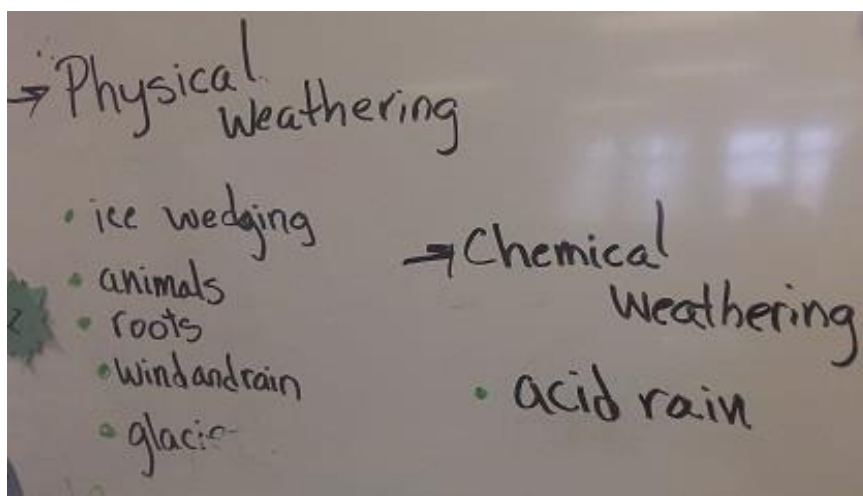 → Physical
Weathering
• ice wedging
• animals
• roots
• wind and rain
→ Chemical
Weathering
• acid rain